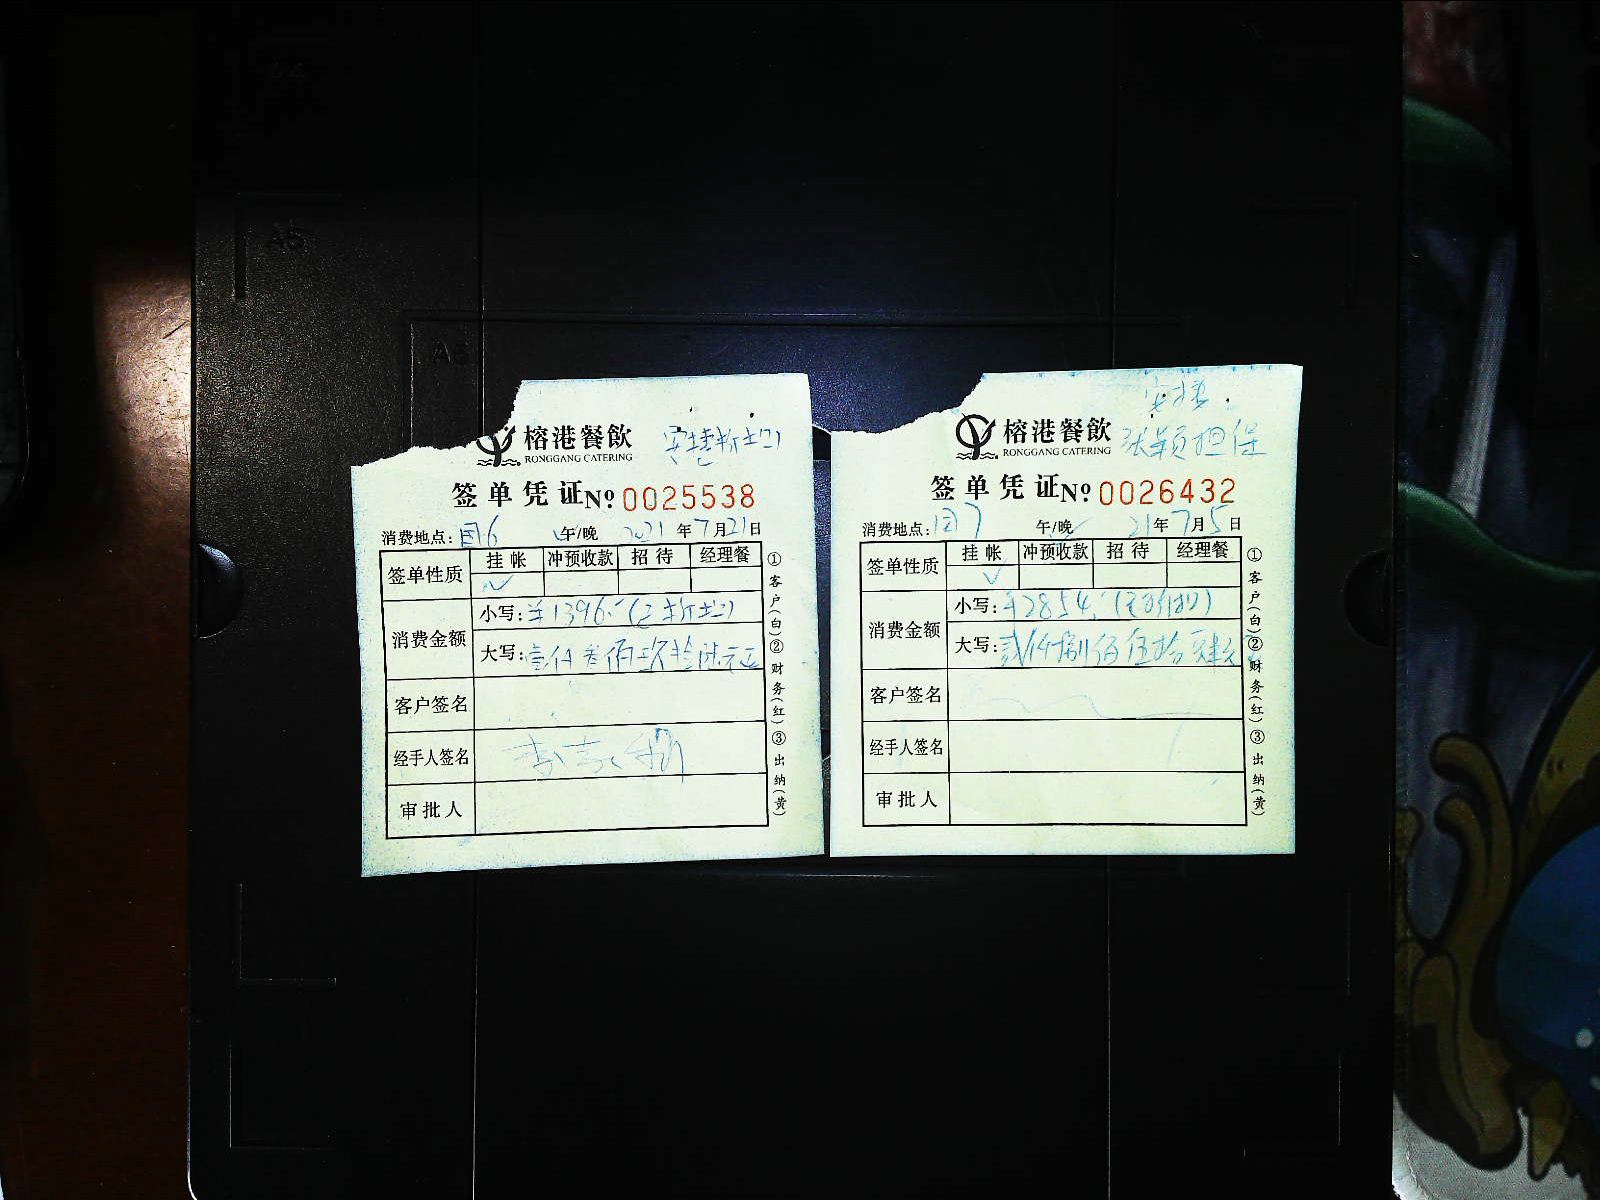 榕港餐飲
RONGGANG CATERING
签单凭证№ 0025538
消费地点: 国6 午/晚 2021年7月21日
签单性质 挂帐 冲预收款 招待 经理餐
消费金额
小写: ¥1396.-
大写: 壹仟叁佰玖拾陆元正
客户签名
经手人签名
审批人
①客户(白)②财务(红)③出纳(黄)
榕港餐飲
RONGGANG CATERING
张颖担保
签单凭证№ 0026432
消费地点: 国7 午/晚 21年7月5日
签单性质 挂帐 冲预收款 招待 经理餐
消费金额
小写: ¥2854.
大写: 贰仟捌佰伍拾肆元
客户签名
经手人签名
审批人
①客户(白)②财务(红)③出纳(黄)
A5